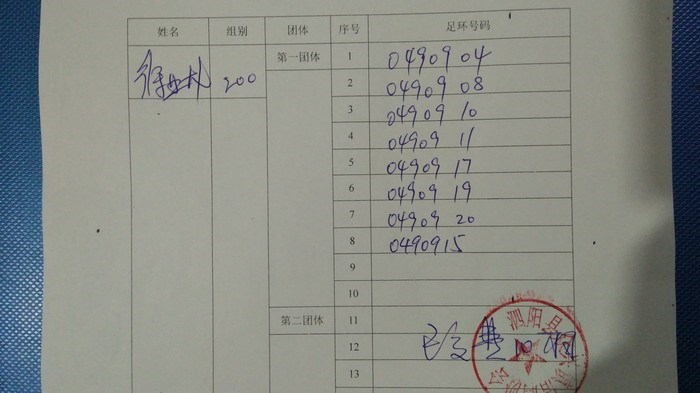 姓名 组别 团体 序号 足环号码
徐 200 第一团体 1 0490904
2 0490908
3 0490910
4 0490911
5 0490917
6 0490919
7 0490920
8 0490915
9
10
第二团体 11
12 费
13
泗阳县